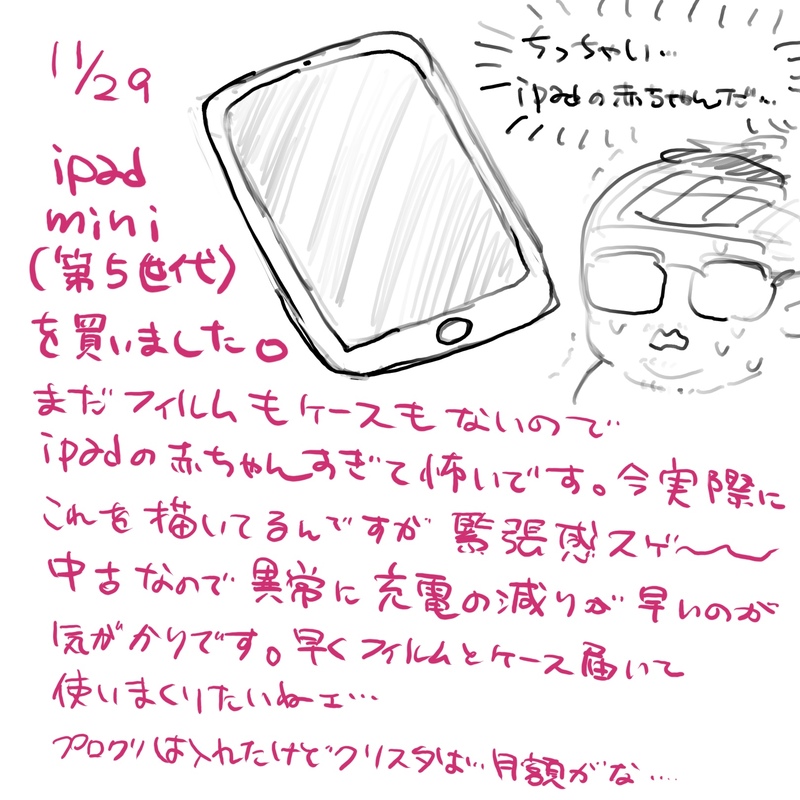 11/29
ちっちゃい…
ipadの赤ちゃんだ…
ipad
mini
(第5世代)
を買いました。
まだフィルムもケースもないので
ipadの赤ちゃんすぎて怖いです。今実際に
これを描いてるんですが緊張感スゲ〜〜
中古なので異常に充電の減りが早いのが
気がかりです。早くフィルムとケース届いて
使いまくりたいねェ…
プロクリは入れたけどクリスタは…月額がな….